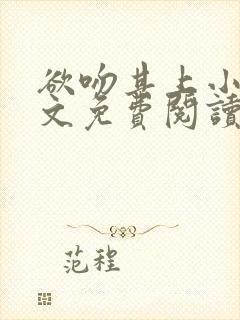 欲吻其上小
文免費閱讀
范程